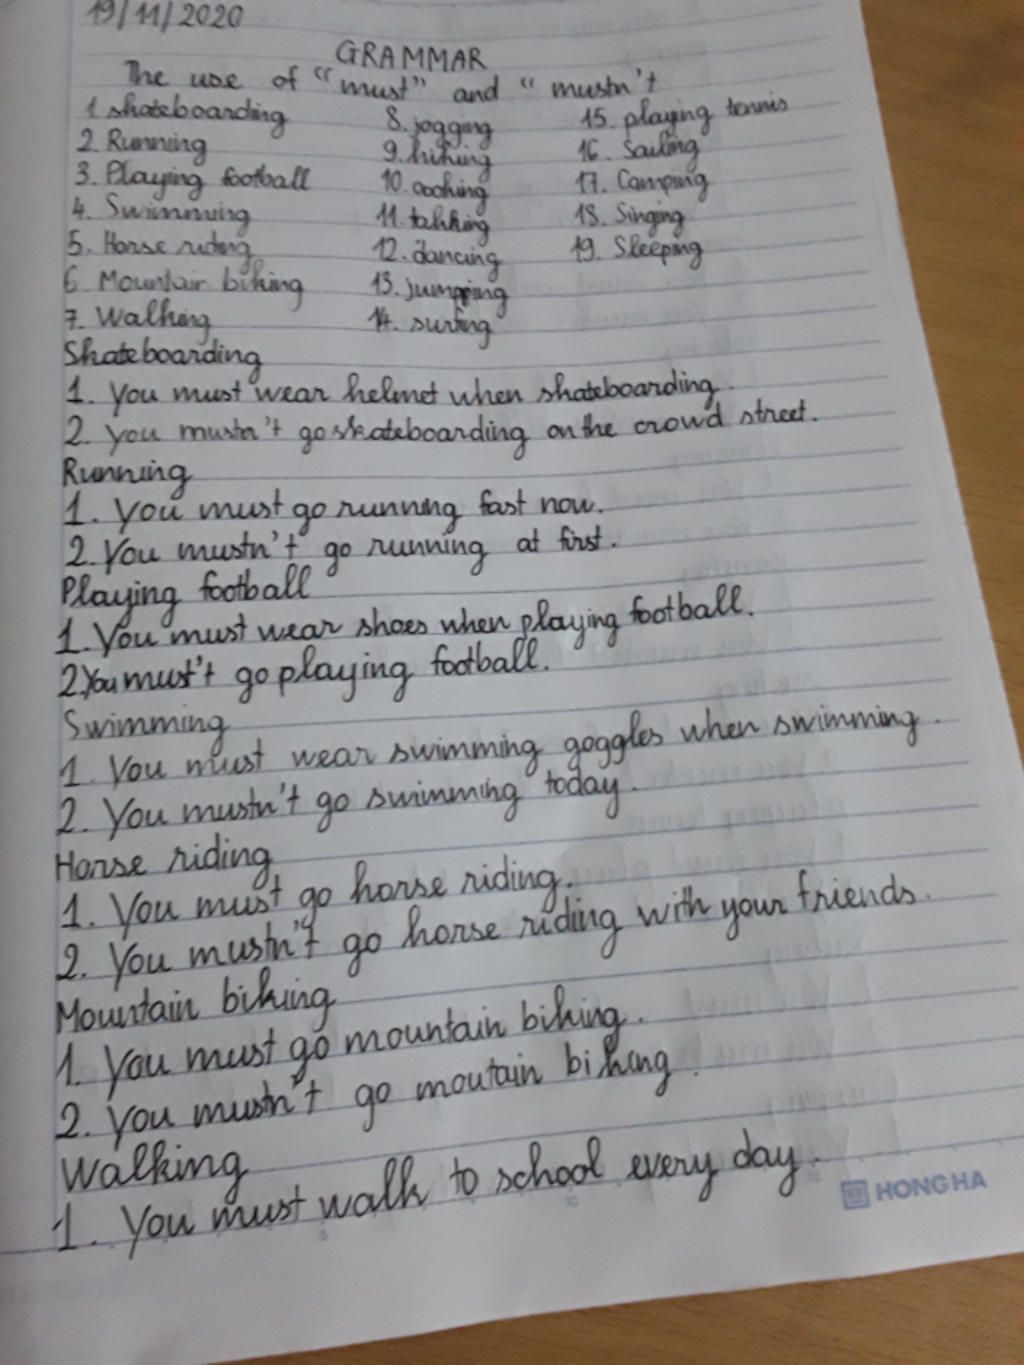 19/11/2020
GRAMMAR
The use of "must" and "mustn't
1 skateboarding 8. jogging 15. playing tennis
2. Running 9. hiking 16. Sailing
3. Playing football 10. cooking 17. Camping
4. Swimming 11. talking 18. Singing
5. Horse riding 12. dancing 19. Sleeping
6. Mountain biking 13. jumping
7. Walking 14. surfing
Skateboarding
1. You must wear helmet when skateboarding.
2. you mustn't go skateboarding on the crowd street.
Running
1. You must go running fast now.
2. You mustn't go running at first.
Playing football
1. You must wear shoes when playing football.
2 You must't go playing football.
Swimming
1. You must wear swimming goggles when swimming.
2. You mustn't go swimming today.
Horse riding
1. You must go horse riding.
2. You mustn't go horse riding with your friends.
Mountain biking
1. You must go mountain biking.
2. You mustn't go moutain biking.
Walking
1. You must walk to school every day.
HONG HA